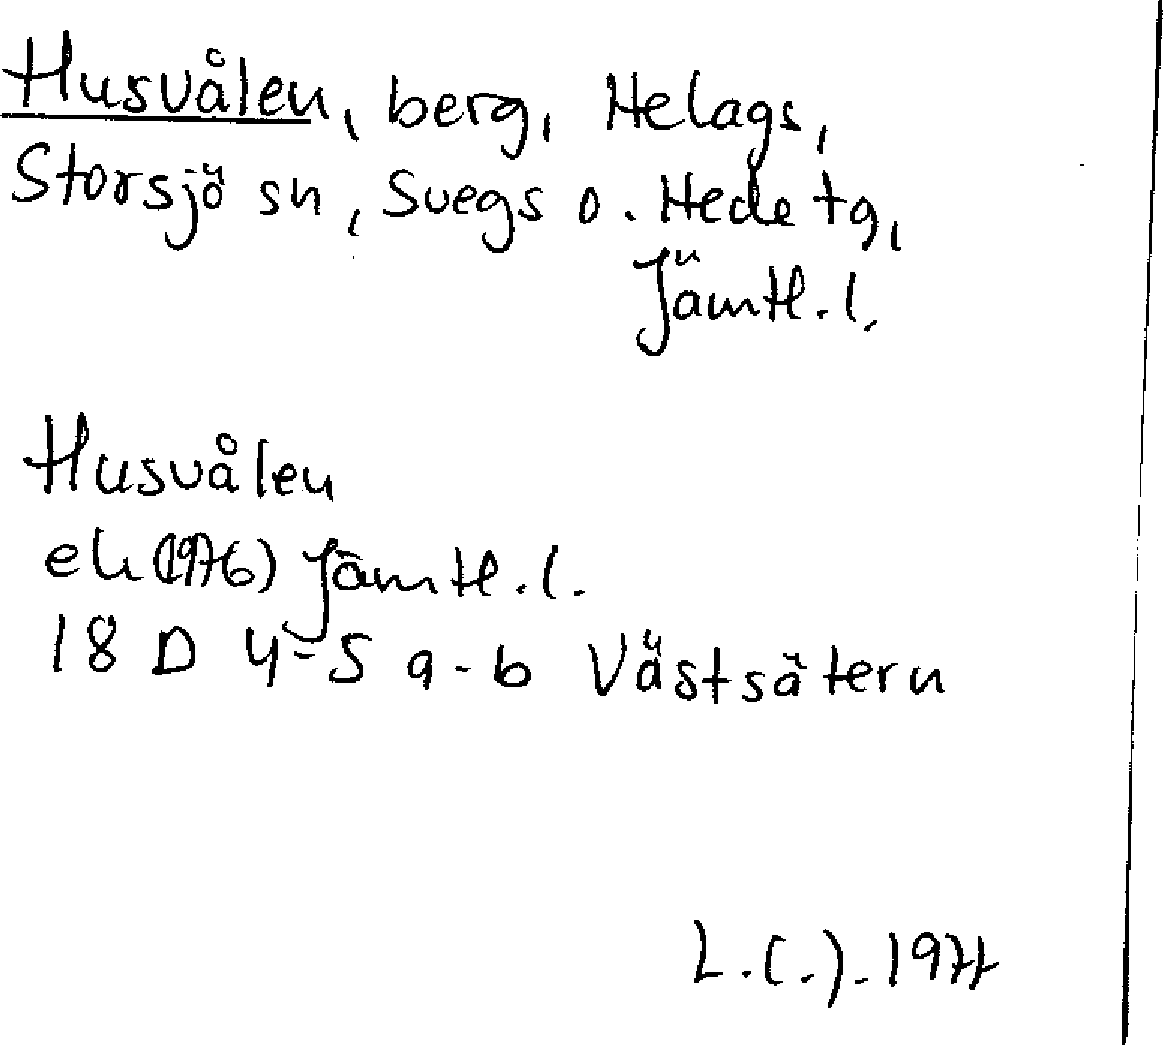 Husvålen, berg, Helags,
Storsjö sn, Svegs o. Hede tg,
Jämtl. l.
Husvålen
ek (1976) Jämtl. l.
18 D 4-5 a-b Västsätern
L.(.). 1977